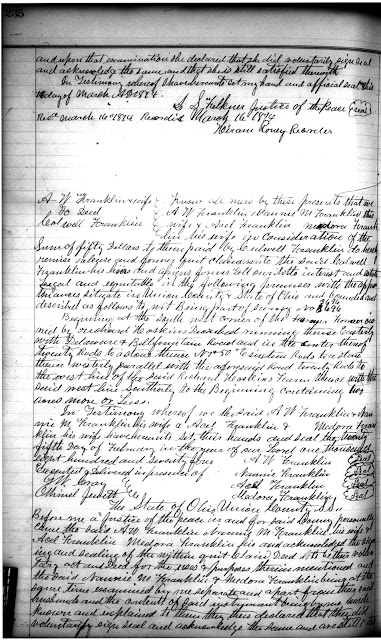 235
and upon that examination she declared that she did voluntarily sign seal
and acknowledge the same and that she is still satisfied therewith
In Testimony whereof I have hereunto set my hand and official seal this
day of March A.D. 1874.
L. S. Fulkner Justice of the Peace seal
Rec. March 16 1874 Recorded March 16 1874
Hiram Roney Recorder
A W Franklin & wife Know all men by these presents that we
To Deed A. W. Franklin & Nannie M Franklin his
Colwell Franklin wife & Asel Franklin Medora Franklin
his wife in Consideration of the
Sum of fifty Dollars to them paid by Colwell Franklin do hereby
remise release and forever quit claim unto the said Colwell
Franklin his heirs and assigns forever all our title interest and estate
legal and equitable in the following premises with the appur
tenances situate in Union County & State of Ohio and bounded and
described as follows to wit Being part of survey No
Beginning at the South east corner of the farm former own
ed by Richard Hoskins Deceased running thence Easterly
with Delaware & Bellfountain Road and in the center thereof
twenty Rods to a stone thence N 50 E Rods to a stone
thence westerly parallel with the aforesaid Road twenty Rods to
the east line of the said Richard Hoskins Farm thence with the
said west line Southerly to the Beginning containing two
acres more or less.
In Testimony whereof we the said A W Franklin & Nan
nie M. Franklin his wife & Asel Franklin & Medora Frank
lin his wife have hereunto set their hands and seal the twenty
fifth day of February in the year of our Lord one thousand
eight hundred and seventy four A W Franklin Seal
Executed & Delivered in presence of Nannie Franklin Seal
G W Cray Asel Franklin Seal
Medora Franklin Seal
The State of Ohio Union County S.S.
Before me a Justice of the peace in and for said County personally
came the said A. W. Franklin & Nannie M. Franklin his wife &
Asel Franklin Medora Franklin and acknowledged the sign
ing and sealing of the within quit Claim Deed to be their volun
tary act and Deed for the uses & purposes therein mentioned and
the said Nannie M. Franklin & Medora Franklin being at the
same time examined by me separate and apart from their said
husbands and the contents of said instrument being by me made
known and explained to them they then declared that they did
voluntarily sign seal and acknowledge the same and are still